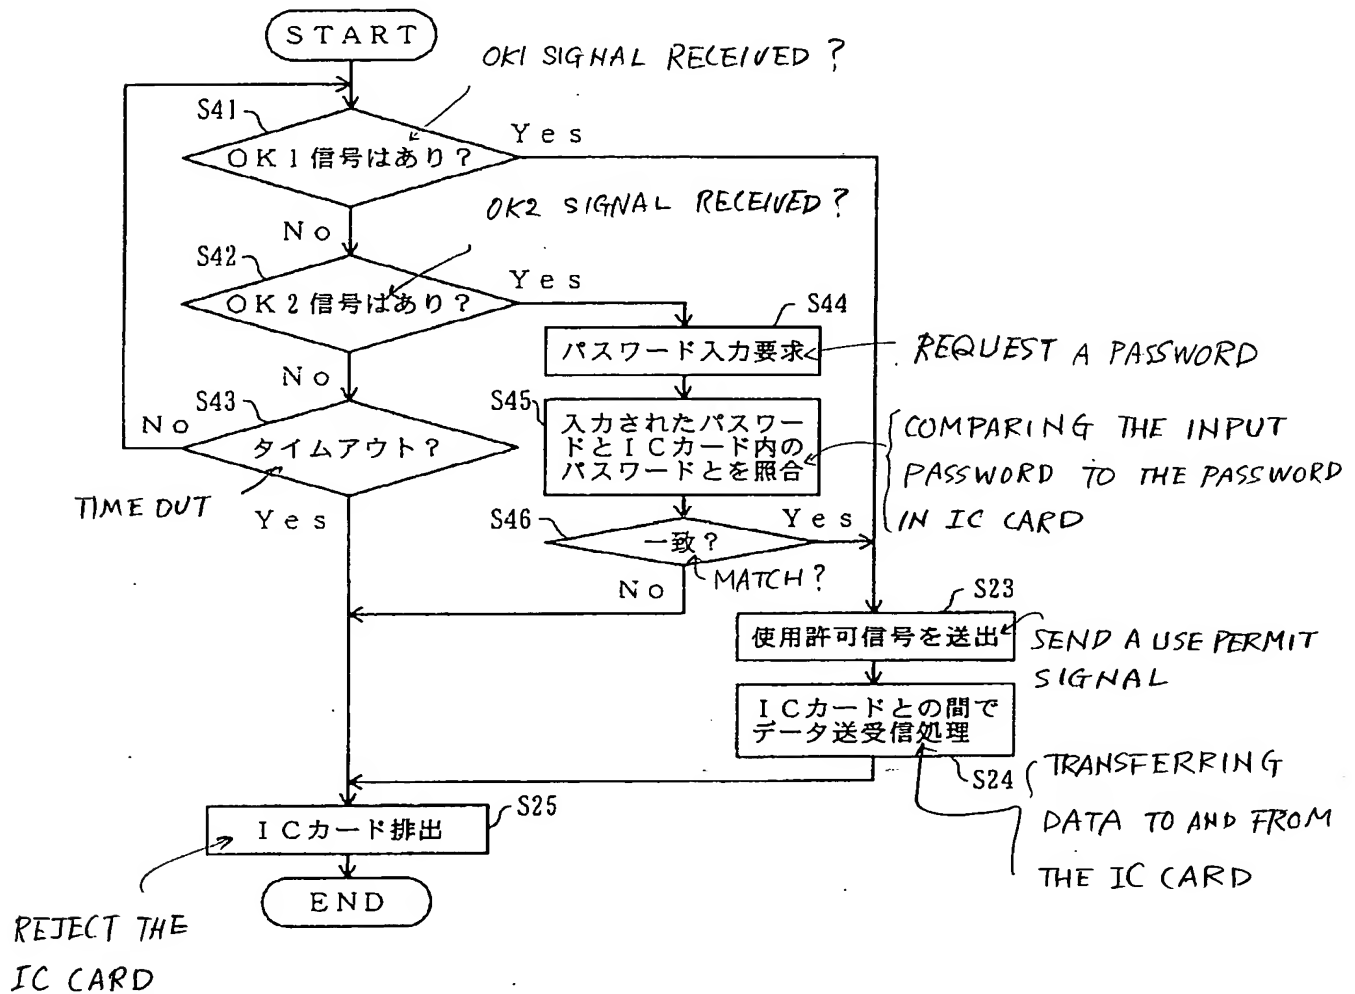 START
OK1 SIGNAL RECEIVED?
S41
OK1信号はあり?
Yes
No
OK2 SIGNAL RECEIVED?
S42
OK2信号はあり?
Yes
No
S44
パスワード入力要求
REQUEST A PASSWORD
S43
タイムアウト?
No
TIME OUT
Yes
S45
入力されたパスワー
ドとICカード内の
パスワードとを照合
COMPARING THE INPUT
PASSWORD TO THE PASSWORD
IN IC CARD
S46
一致?
Yes
MATCH?
No
S23
使用許可信号を送出
SEND A USE PERMIT
SIGNAL
ICカードとの間で
データ送受信処理
S24
TRANSFERRING
DATA TO AND FROM
THE IC CARD
S25
ICカード排出
END
REJECT THE
IC CARD